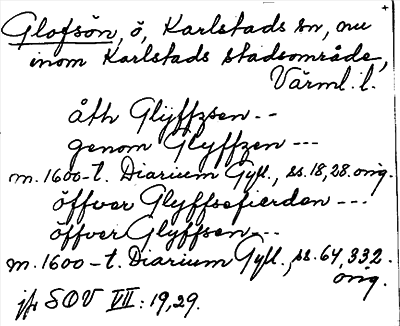 Glofsön, ö, Karlstads sn, nu
inom Karlstads stadsområde,
Värml. l.
åth Glÿffzsen --
genom Glyffzen ---
m. 1600-t. Diarium Gyll., ss. 18, 28. orig.
öffver Glyffsefierden ---
öffver Glyffsen ---
m. 1600-t. Diarium Gyll., ss. 64, 332.
orig.
jfr SOV VII: 19, 29.